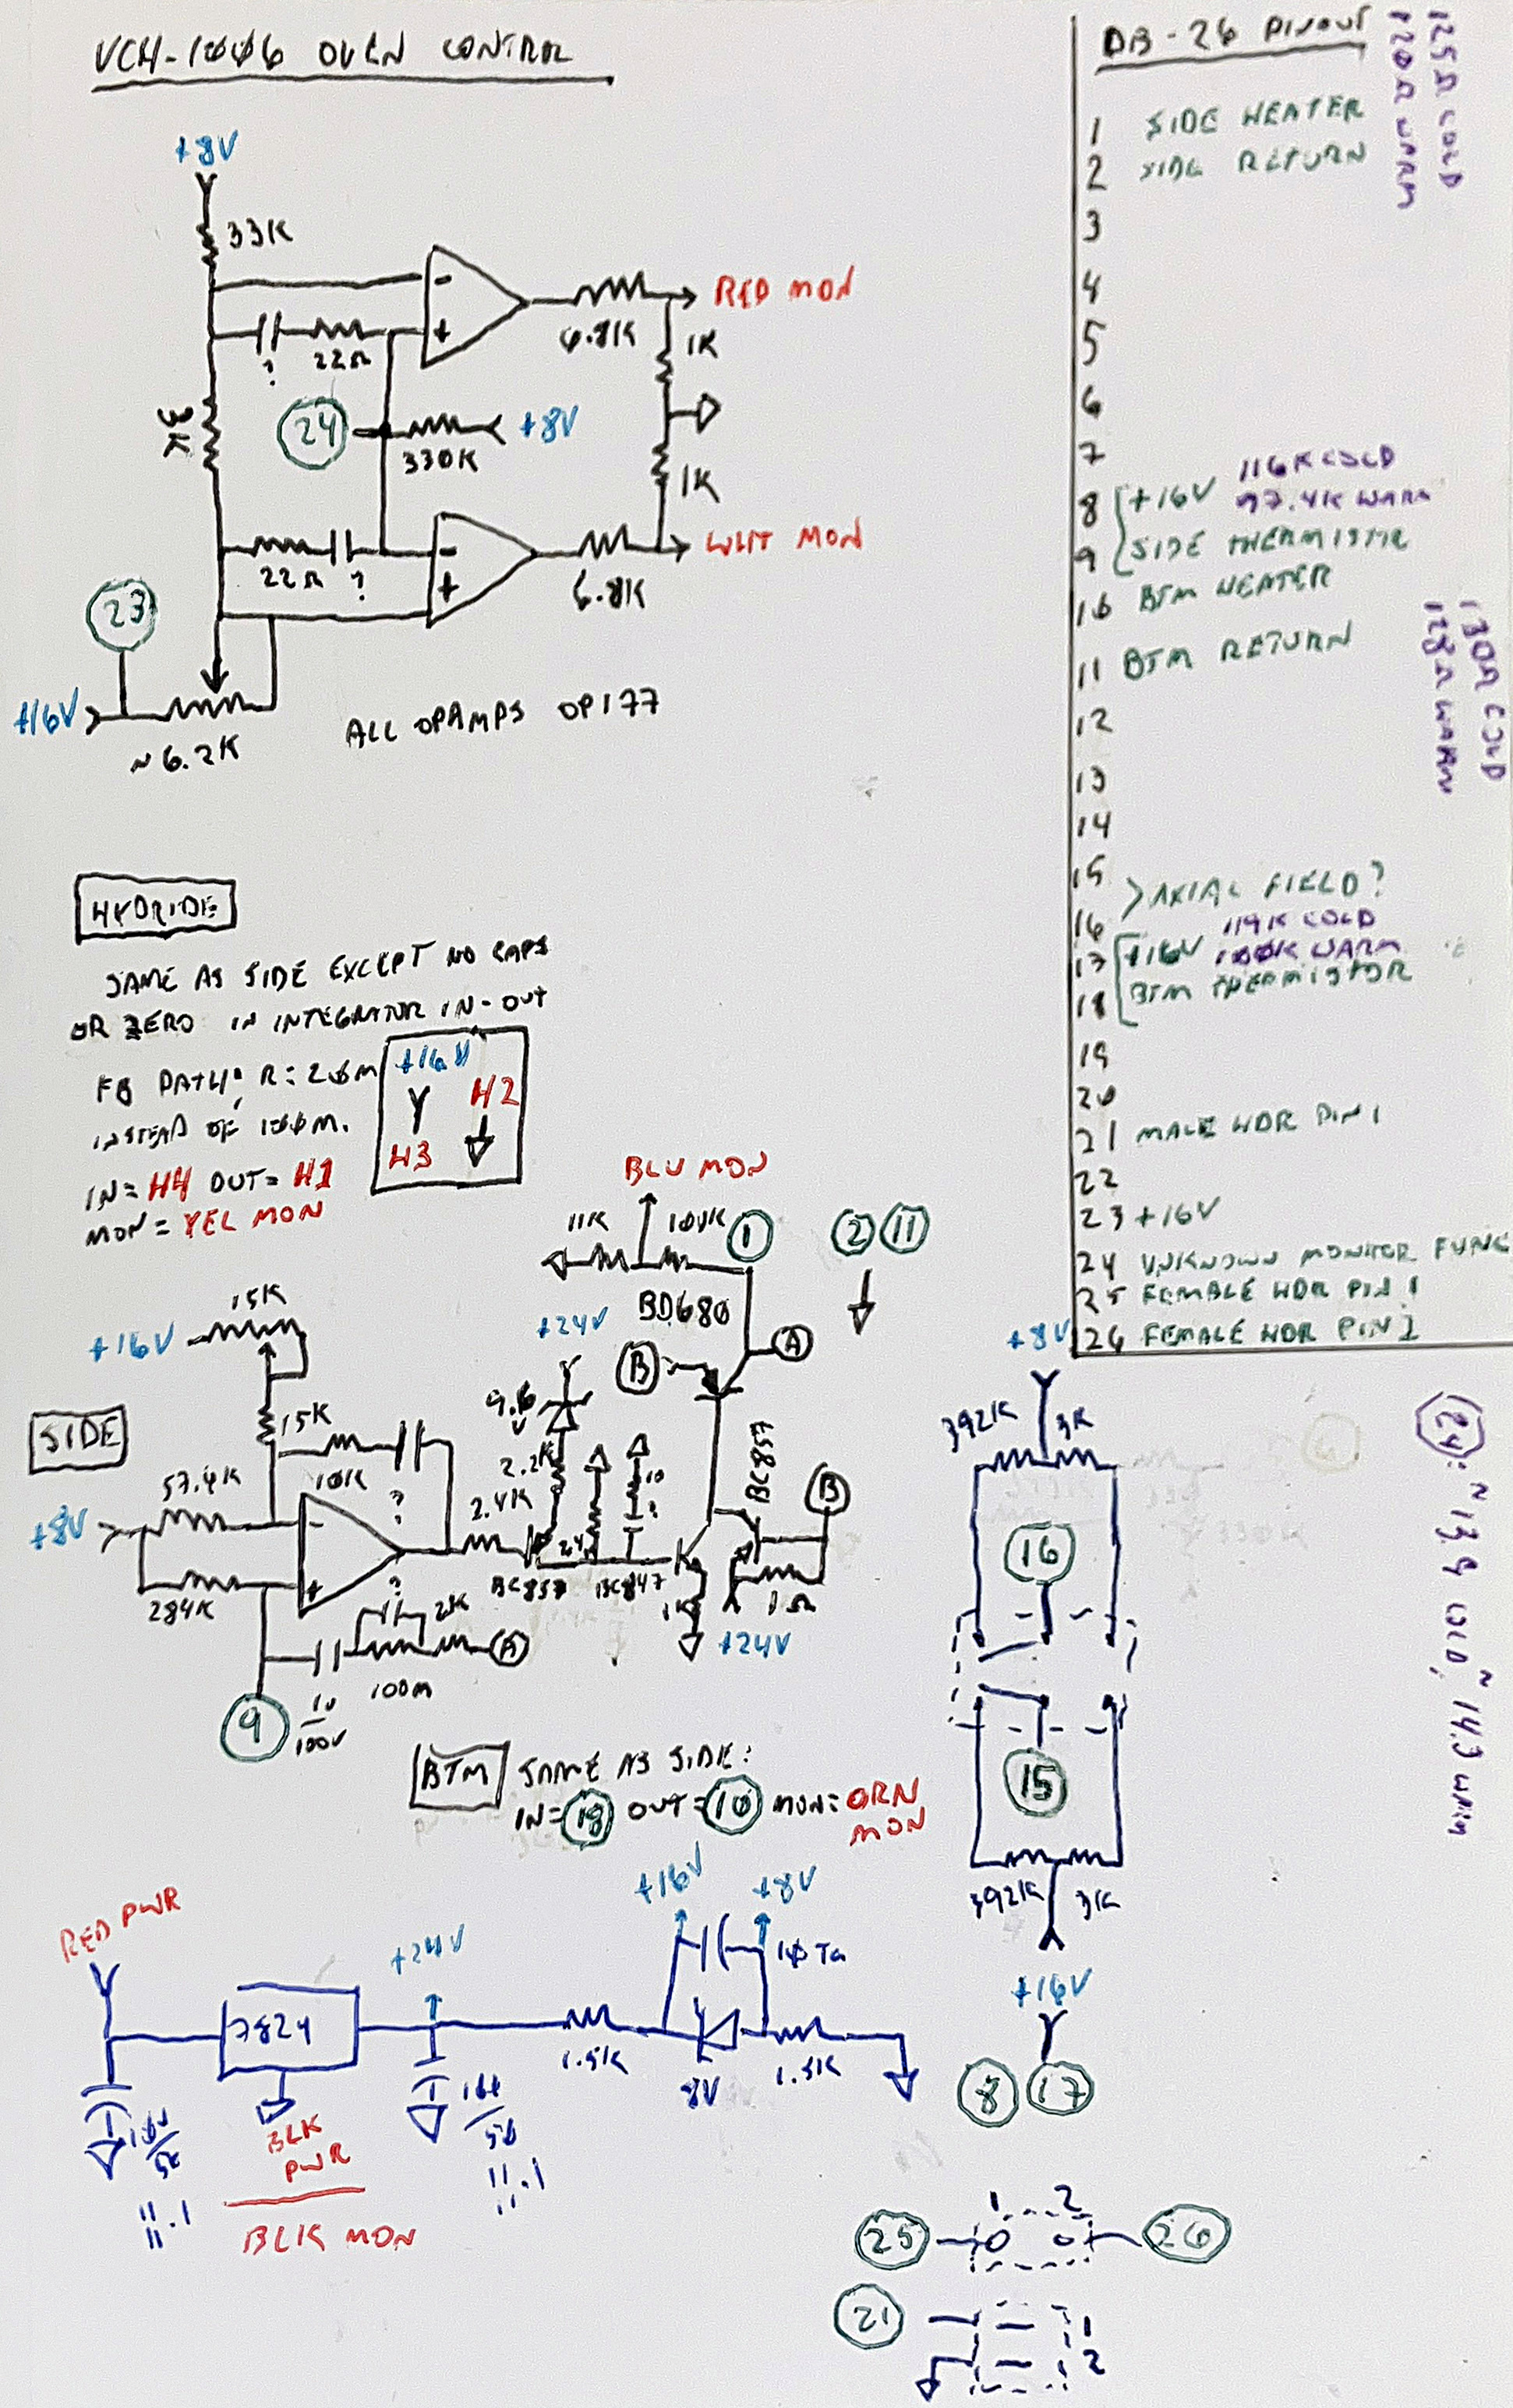 VCH-1006 OVEN CONTROL
+8V
33K
-
+
?
22Ω
6.8K
RED MON
1K
3K
24
330K
+8V
1K
22Ω
?
-
+
6.8K
WHT MON
23
+16V
~6.2K
ALL OPAMPS OP177
HYDRIDE
SAME AS SIDE EXCEPT NO CAPS
OR ZERO IN INTEGRATOR IN-OUT
FB PATH: R=20M
INSTEAD OF 100M.
IN= H4 OUT= H1
MON= YEL MON
+16V
H2
H3
BLU MON
11K
100K
1
2
11
BD680
+24V
B
A
15K
+16V
SIDE
15K
10K
?
57.4K
+8V
284K
-
+
9.6
V
2.2K
2.4K
24K
10
?
BC857
BC847
BC857
B
1K
1Ω
+24V
?
2K
A
9
1U/100V
100M
BTM
SAME AS SIDE:
IN= 18 OUT= 10 MON= ORN
MON
RED PWR
7824
+24V
BLK
PWR
BLK MON
10U/50
11.1
10U/50
11.1
1.5K
+16V
+8V
10 Ta
8V
1.5K
DB-26 PINOUT
1 SIDE HEATER
2 SIDE RETURN
125Ω COLD
120Ω WARM
3
4
5
6
7
8 +16V
116K COLD
97.4K WARM
9 SIDE THERMISTOR
10 BTM HEATER
11 BTM RETURN
130Ω COLD
128Ω WARM
12
13
14
15
16
AXIAL FIELD?
17 +16V
119K COLD
100K WARM
18 BTM THERMISTOR
19
20
21 MALE HDR PIN 1
22
23 +16V
24 UNKNOWN MONITOR FUNC
25 FEMALE HDR PIN 1
26 FEMALE HDR PIN 2
+8V
392K
3K
16
15
392K
3K
+16V
8
17
24: ~13.9 COLD, ~14.3 WARM
1 2
25
26
21
1
2